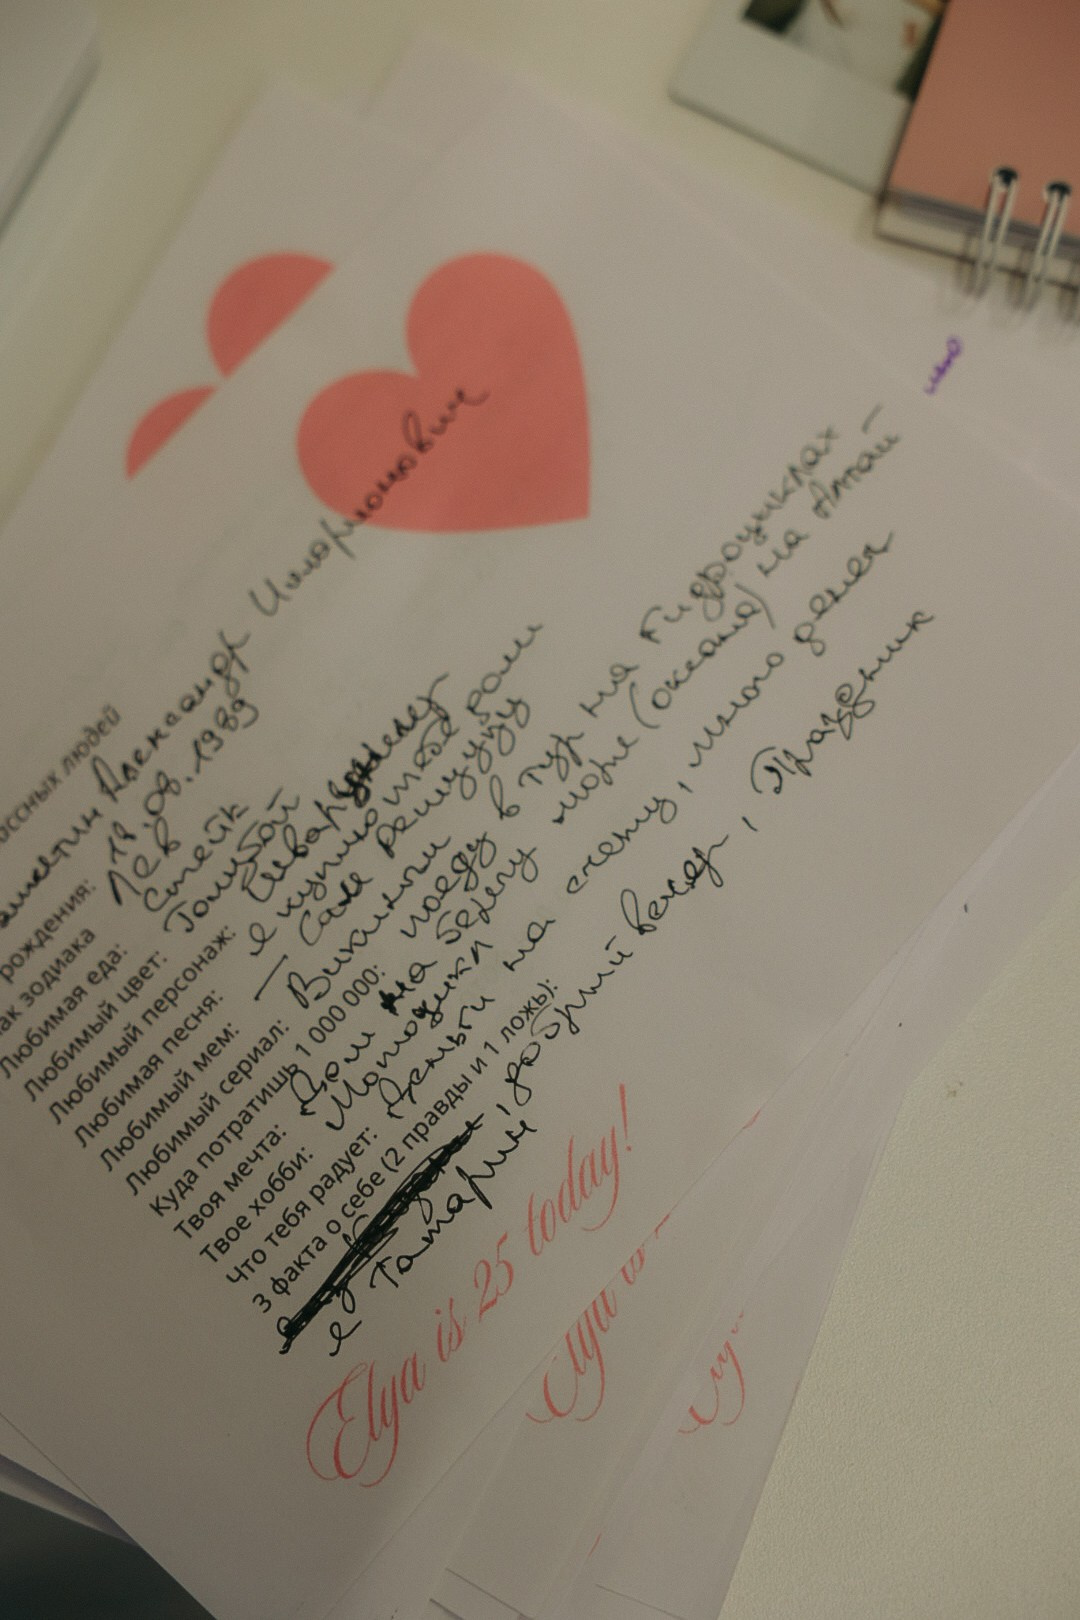 ассных людей
Александр Илларионович
рождения: 19.08.1989
ак зодиака Лев
Любимая еда: Стейк
Любимый цвет: Голубой
Любимый персонаж: Шварценегер
Любимая песня: я куплю тебе
Любимый мем: — сам
Любимый сериал: Викинги
Куда потратишь 1 000 000: поеду в тур на гидроциклах
Твоя мечта: Дом на берегу моря (океана) на Алтай —
Твое хобби: Мотоцикл
Что тебя радует: Деньги на счету, много денег
3 факта о себе (2 правды и 1 ложь):
я Татарин, добрый вечер, Праздник
Elya is 25 today!